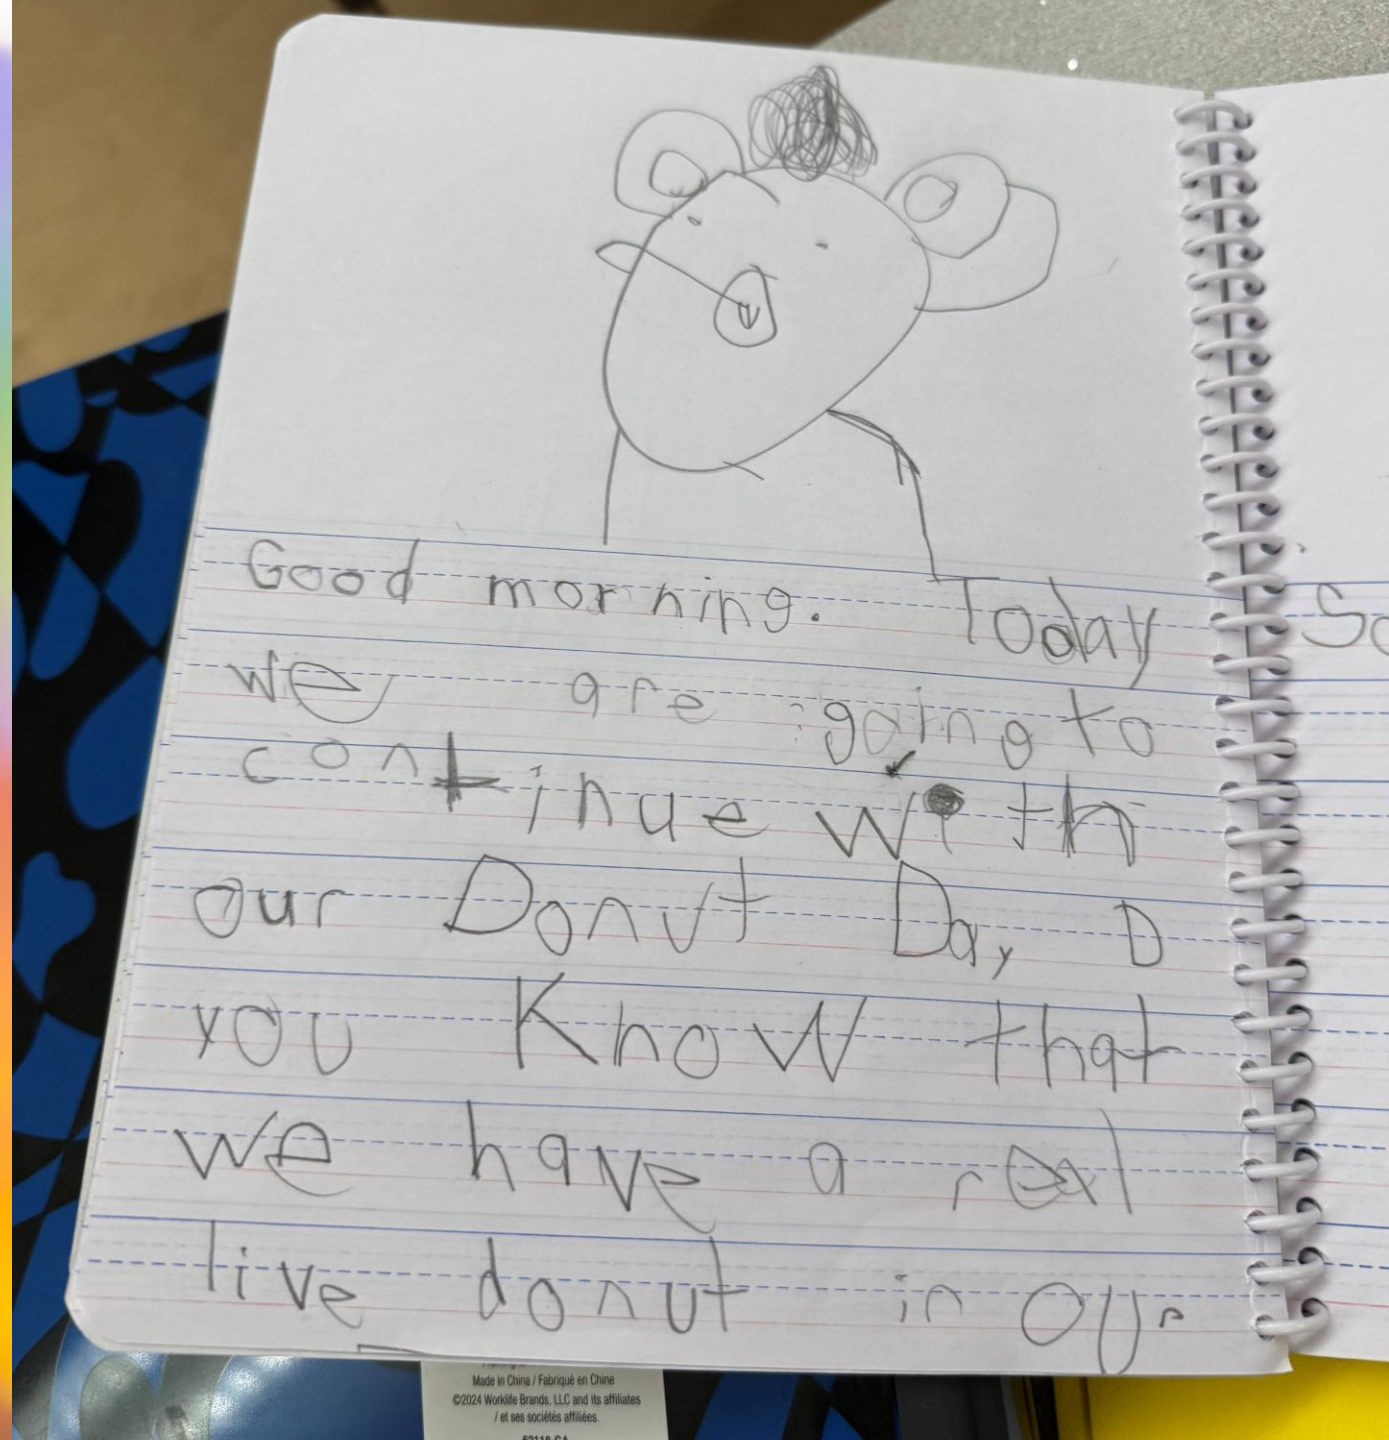 Good morning. Today
we are going to
continue with
our Donut Day, D
you Know that
we have a real
live donut in our
So
Made in China / Fabriqué en Chine
©2024 Worklife Brands, LLC and its affiliates
/ et ses sociétés affiliées.
62118-CA